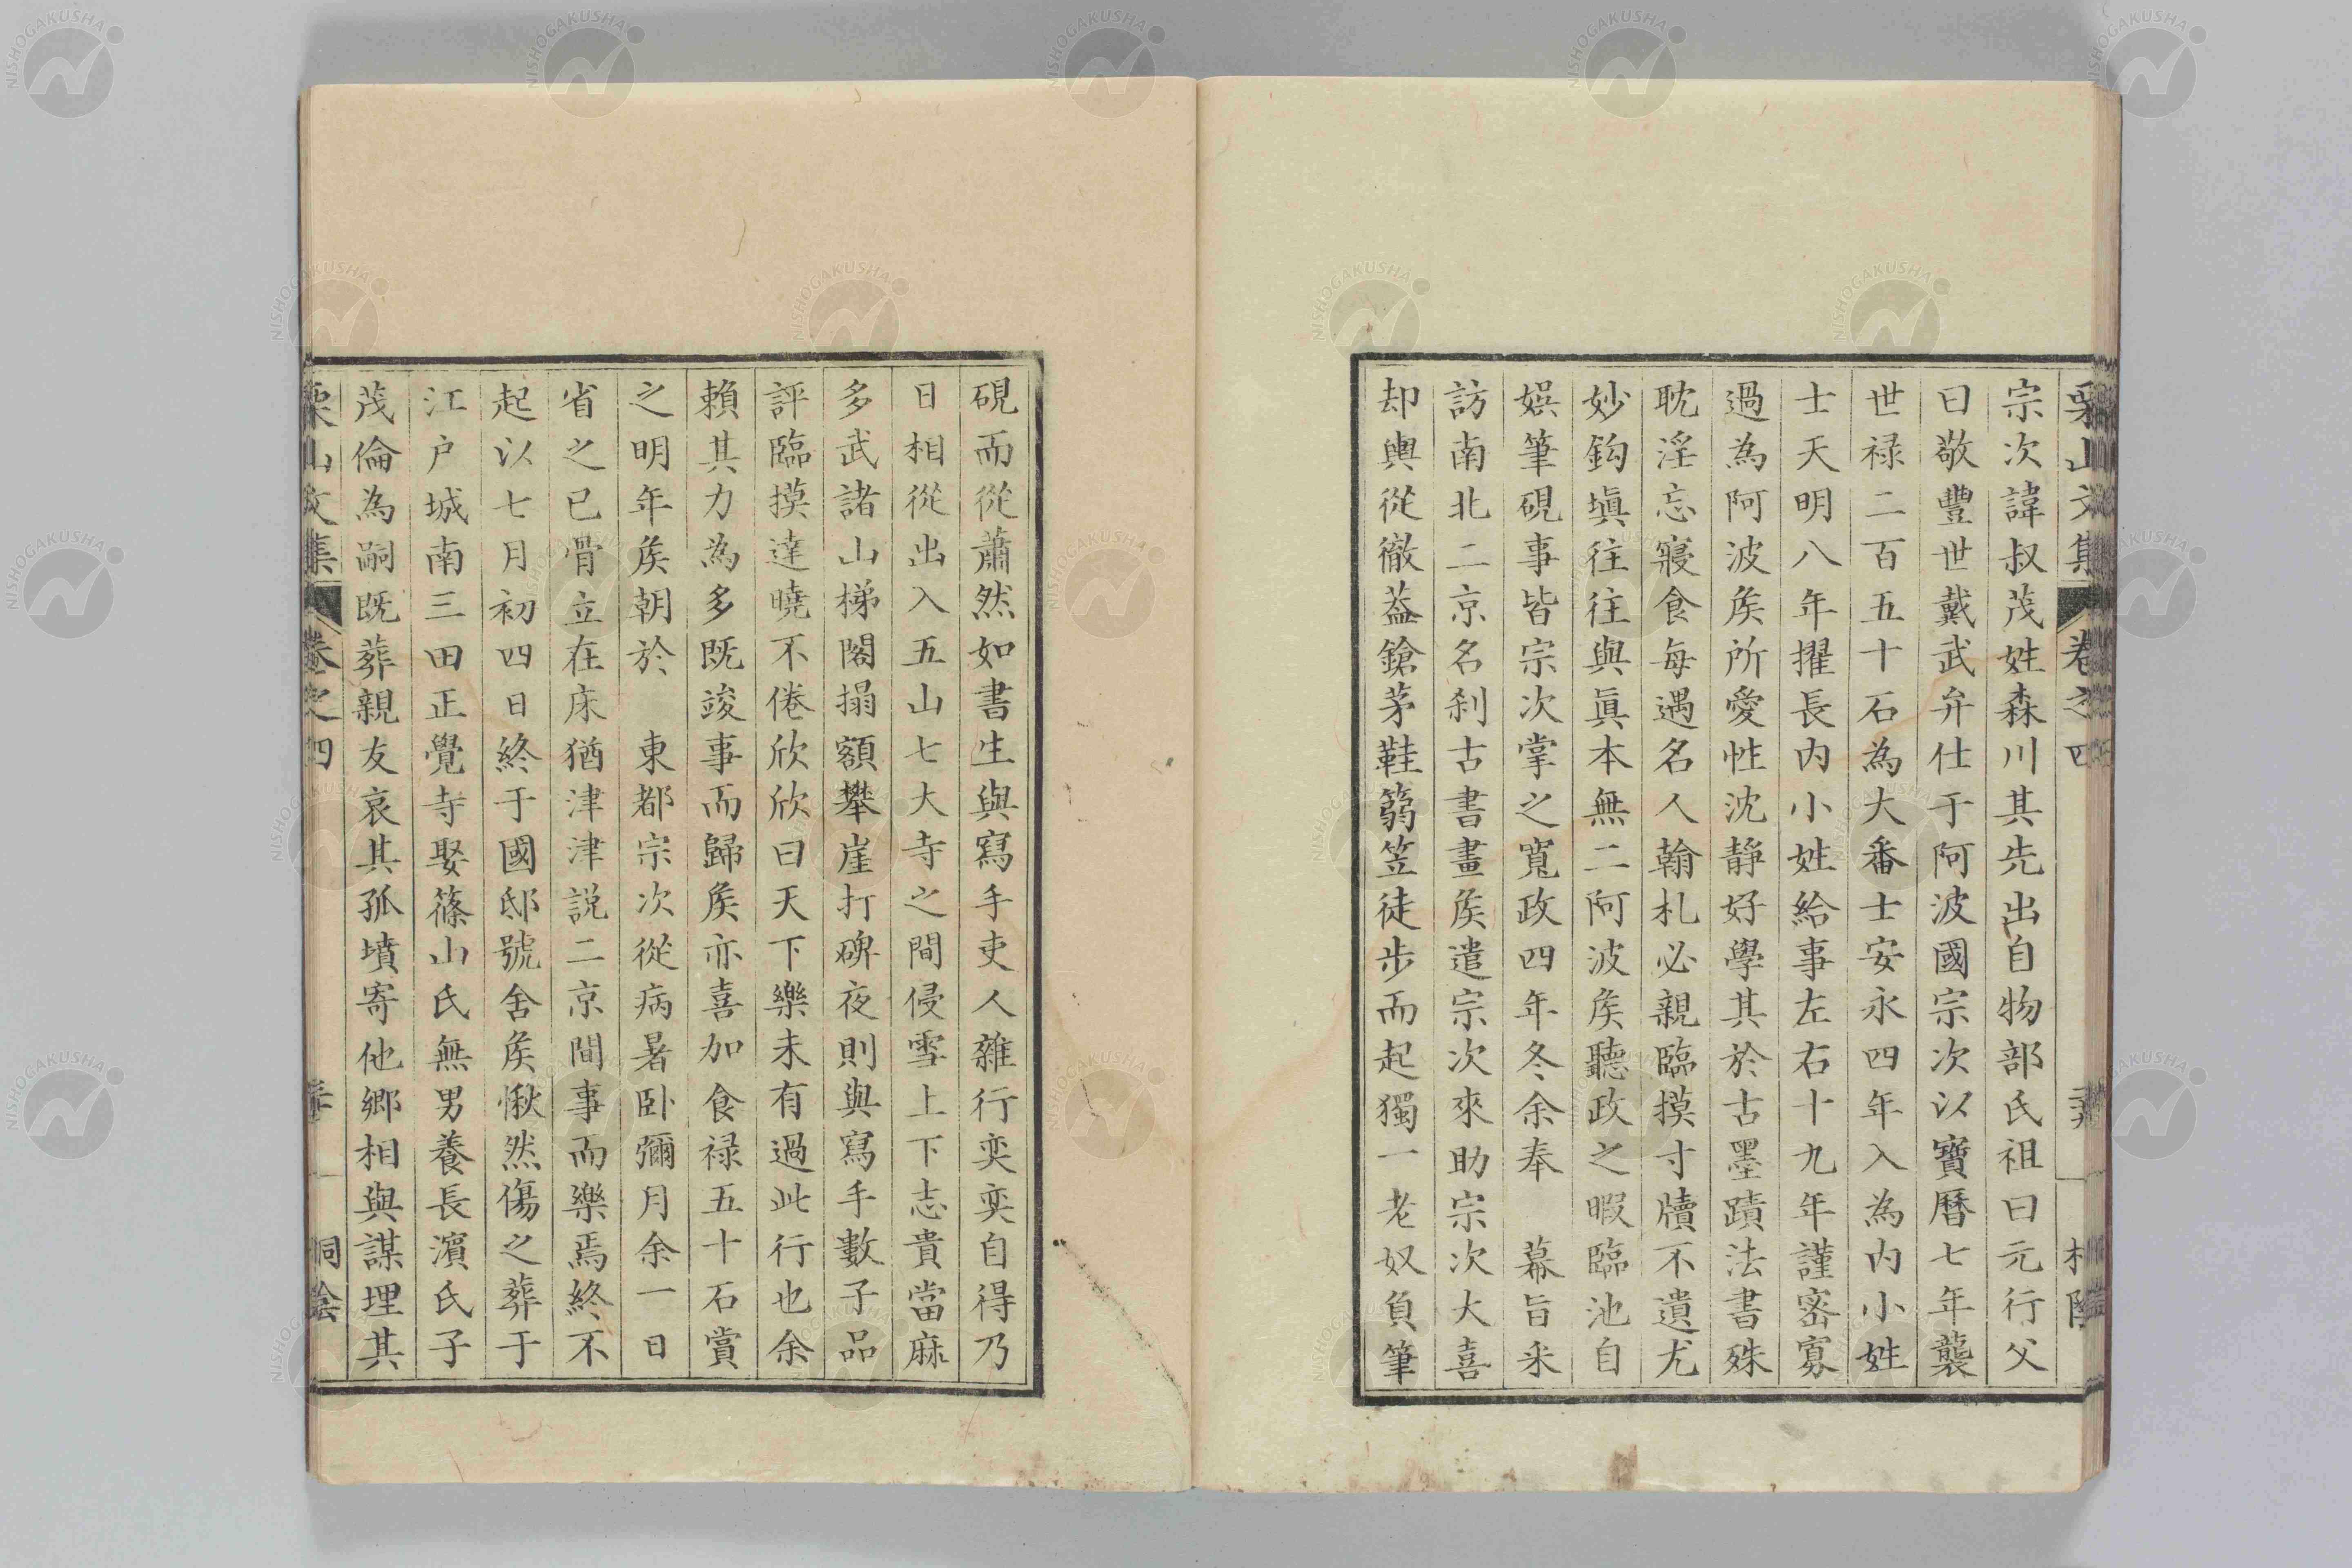 宗次諱叔茂姓森川其先出自物部氏祖曰元行父
曰敬豐世戴武弁仕于阿波國宗次以寶曆七年襲
世禄二百五十石為大番士安永四年入為内小姓
士天明八年擢長内小姓給事左右十九年謹密寡
過為阿波矦所愛性沈静好學其於古墨蹟法書殊
耽淫忘寢食每遇名人翰札必親臨摸寸牘不遺尤
妙鈎塡往往與眞本無二阿波矦聽政之暇臨池自
娯筆硯事皆宗次掌之寬政四年冬余奉 幕旨来
訪南北二京名刹古書畫矦遣宗次來助宗次大喜
却輿從徹葢鎗茅鞋篛笠徒步而起獨一老奴負筆
硯而從蕭然如書生與寫手吏人雜行奕奕自得乃
日相從出入五山七大寺之間侵雪上下志貴當麻
多武諸山梯閣搨額攀崖打碑夜則與寫手數子品
評臨摸達曉不倦欣欣曰天下樂未有過此行也余
賴其力為多既竣事而歸矦亦喜加食禄五十石賞
之明年矦朝於 東都宗次從病暑卧彌月余一日
省之已骨立在床猶津津説二京間事而樂焉終不
起以七月初四日終于國邸號舍矦愀然傷之葬于
江户城南三田正覺寺娶篠山氏無男養長濱氏子
茂倫為嗣既葬親友哀其孤墳寄他鄉相與謀埋其
栗山文集 卷之四 桐陰